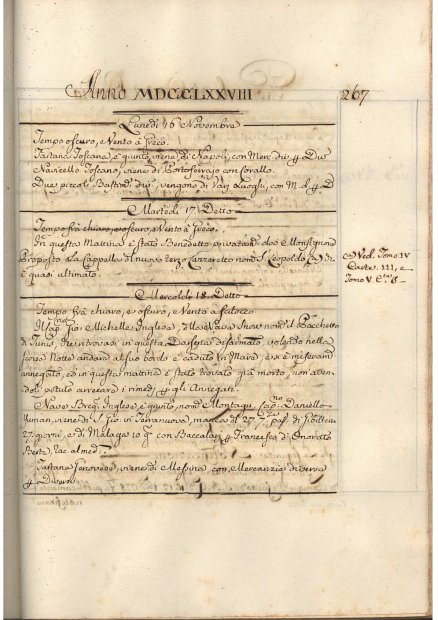 Anno MDCCLXXVIII
267
Lunedì 16 Novembre
Tempo oscuro, e Vento a Greco.
Tartana Toscana, è giunta, viene di Napoli, con Merc. div.
Navicello Toscano, viene di Portoferrajo con Corallo.
Due piccoli Bastim. div. vengono di
Martedì 17 Detto
Tempo frà chiaro, e oscuro, e Vento a Greco.
In questa Mattina è stato Benedetto privatam. da Monsignore
Proposto la Cappella di nuovo terzo Lazzeretto nom. S. Leopoldo (a) di
è quasi ultimato.
(a) Ved. Tomo IV
Carte 111, e
Tomo V. 8.
Mercoledì 18 Detto
Tempo frà chiaro, e oscuro, e Vento a Scilocco.
Il Cap. Gio: Michelle Inglese, nom. il Pacchetto
di Tunis, ritrovasi in questa Darsena disarmato, volendo nella
scorsa Notte andare al suo bordo è caduto in Mare, e si è miseram.
annegato, ed in questa mattina è stato trovato già morto, non aven-
doli potuto arrecare i rimedj gli Annegati.
Nave Inglese, è giunta, nom. Montagu, Cap. Daniello
viene di S. Gio: in Terranuova, manca di
27 giorni, e di Malaga 10 con Baccalari Francesco d'Onorato
Berte,
Tartana Genovese, viene di Messina, con Mercanzia diversa
Diversi.